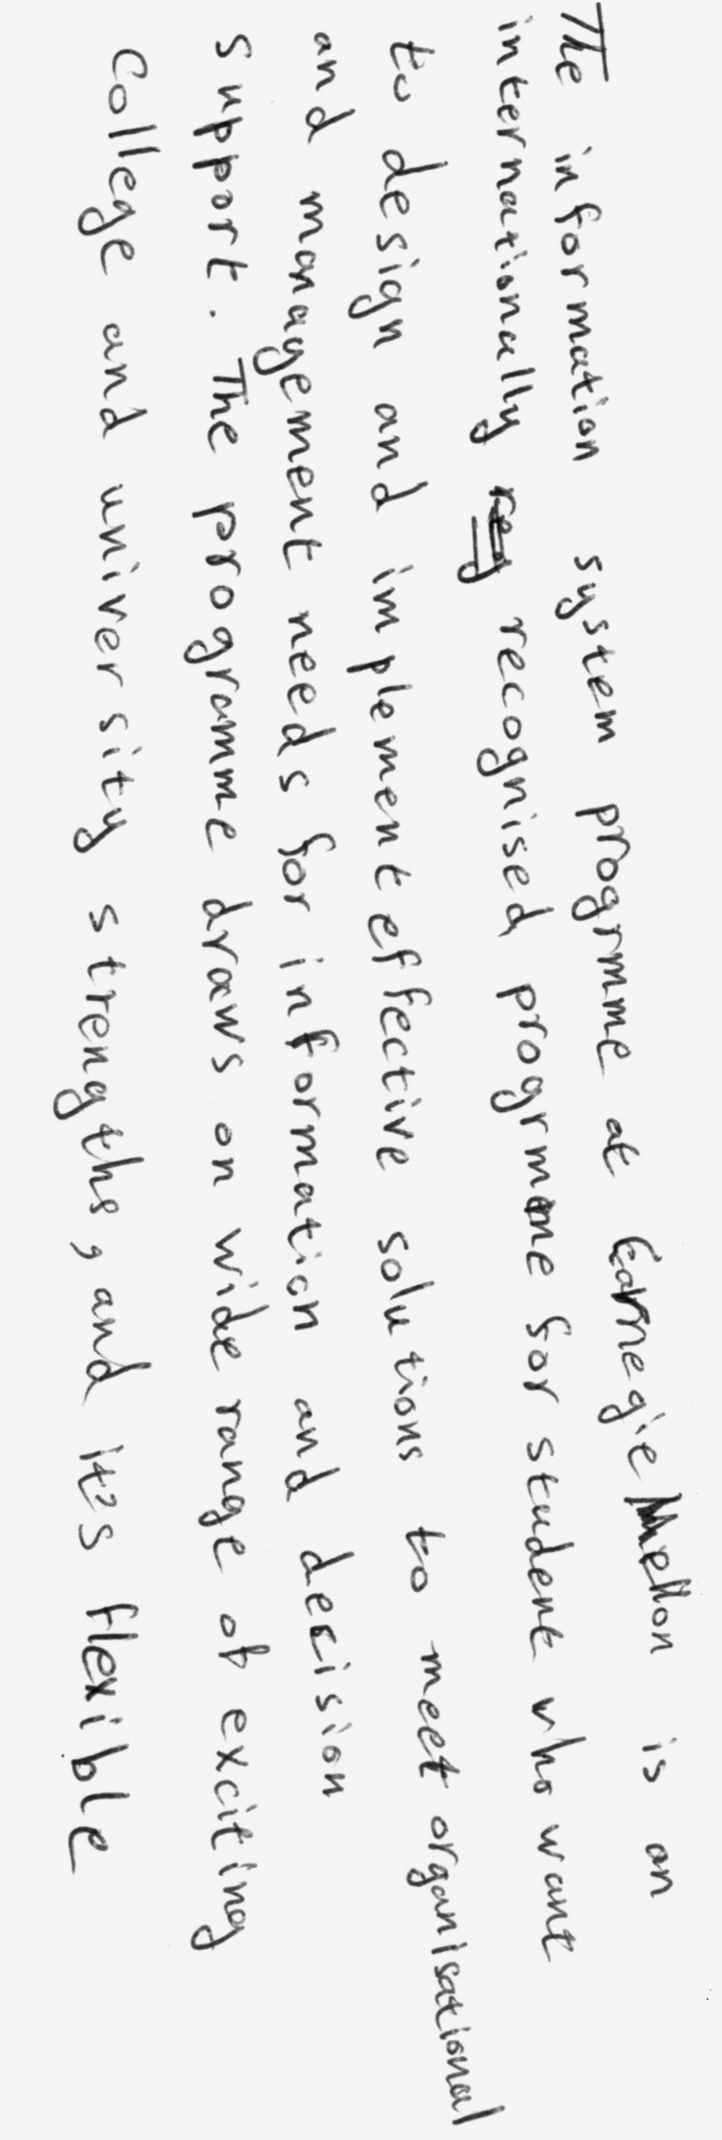 The information system progrmme at Carnegie Mellon is an
internally recognised progrmme for student who want
to design and implement effective solutions to meet organisational
and management needs for information and decision
support. The programme draws on wide range of exciting
College and university strengths, and it's flexible